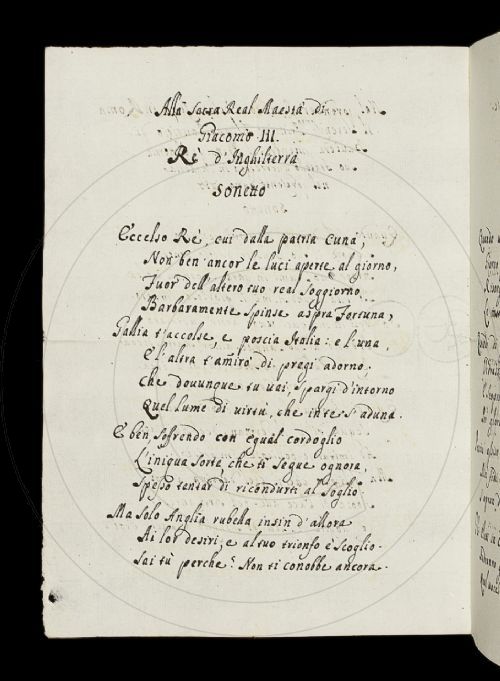 Alla Sacra Real Maestà di
Giacomo III.
Rè d'Inghilterra
Sonetto
Eccelso Rè, cui dalla patria Cuna,
Non ben ancor le luci aperte al giorno,
Fuor dell'altero tuo real soggiorno
Barbaramente spinse aspra Fortuna,
Gallia t'accolse, e poscia Italia: e l'una
E l'altra t'amirò di pregi adorno;
Che dovunque tu vai, spargi d'intorno
Quel lume di virtù, che in te s'aduna.
E ben, soffrendo con egual cordoglio
L'iniqua sorte, che ti segue ognora,
Spesso tentar di ricondurti al Soglio.
Ma solo Anglia rubella insin d'allora
Ai lor desiri, e al tuo trionfo è scoglio.
Sai tù perche? Non ti conobbe ancora.